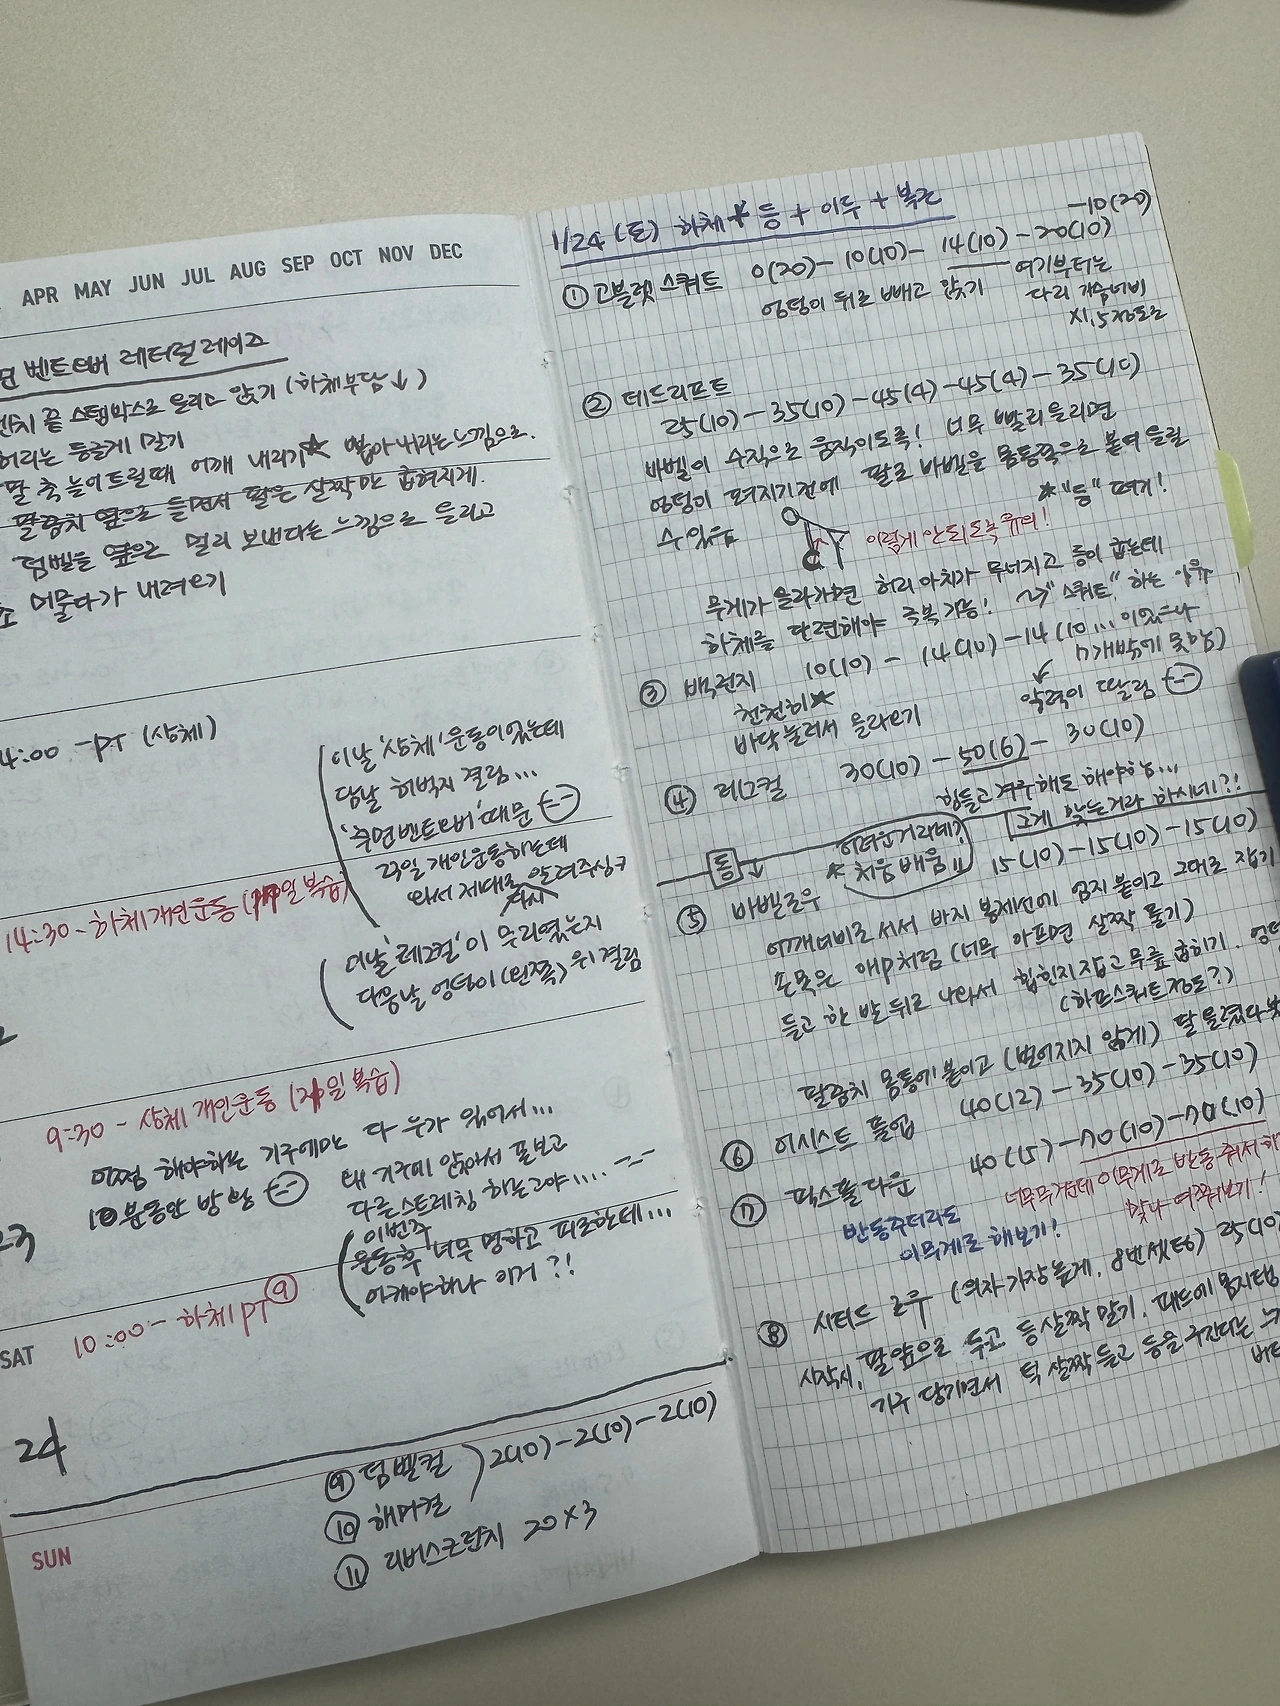 APR MAY JUN JUL AUG SEP OCT NOV DEC
면 벤트오버 레터럴레이즈
벤치 끝 스텝박스로 올리고 앉기 (하체부담↓)
허리는 둥글게 말기
팔 축 늘어트릴때 어깨 내리기★ 뽑아내리는느낌으로.
팔꿈치 옆으로 들면서 팔은 살짝만 굽혀지게.
덤벨을 옆으로 멀리 보낸다는 느낌으로 올리고
머물다가 내려오기
4:00 - PT (상체)
이날 '상체' 운동이었는데
담날 허벅지 결림...
'후면벤트오버' 때문
23일 개인운동하는데
와서 제대로 다시 알려주심ㅋ
14:30 - 하체 개인운동 (일 복습)
이날 '레그컬'이 무리였는지
다음날 엉덩이(왼쪽) 위 결림
9:30 - 상체 개인운동 (21일 복습)
어쩜 해야하는 기구에만 다 누가 있어서...
10분동안 방황
왜 기구에 앉아서 폰보고
다른스트레칭 하는고야....
23
이번주
운동후 너무 멍하고 피로한데...
어케야하나 이거?!
SAT
10:00 - 하체 PT ⑨
24
⑨ 덤벨컬
⑩ 해머컬
2(10)-2(10)-2(10)
⑪ 리버스크런치 20×3
SUN
1/24 (토) 하체 + 등 + 이두 + 복근
① 고블렛 스쿼트 0(20)-10(10)-14(10)-20(10)
-10(20)
엉덩이 뒤로 빼고 앉기
여기부터는
다리 어깨너비
×1.5정도로
② 데드리프트
25(10)-35(10)-45(4)-45(4)-35(10)
바벨이 수직으로 움직이도록! 너무 빨리올리면
엉덩이 펴지기전에 팔로 바벨을 몸통쪽으로 붙여 올릴
수있음
★"등" 펴기!
이렇게 안되도록 유의!
무게가 올라가면 허리 아치가 무너지고 등이 굽는데
하체를 단련해야 극복 가능! ~> "스쿼트" 하는 이유
③ 백런지 10(10) - 14(10) - 14(10... 이었으나
7개밖에 못함)
천천히★
바닥 눌러서 올라오기
악력이 딸림
④ 레그컬 30(10) - 50(6) - 30(10)
힘들고 거추해도 해야함...
그게 맞는거라 하시네?!
등↓
어려운거라데?
★처음배움
⑤ 바벨로우
15(10)-15(10)-15(10)
어깨너비로 서서 바지 봉제선에 엄지 붙이고 그대로 잡기
손목은 애p처럼 (너무 아프면 살짝 풀기)
들고 한 발 뒤로 나와서 힙힌지 잡고 무릎 굽히기.
(하프스쿼트정도?)
팔꿈치 몸통에 붙이고 (벌어지지 않게) 팔 올렸다
⑥ 어시스트 풀업 40(12) - 35(10) - 35(10)
⑦ 픽스풀다운 40(15)-70(10)-70(10)
너무무거운데 이무게로 반동 줘서 하
맞나 여쭤보기!
반동주더라도
이무게로 해보기!
⑧ 시티드 로우 (의자 가장 높게, 8번 세팅) 25(10)
시작시, 팔 앞으로 두고 등살짝 말기. 패드에 몸지탱
기구 당기면서 턱 살짝 들고 등을 구긴다는 느